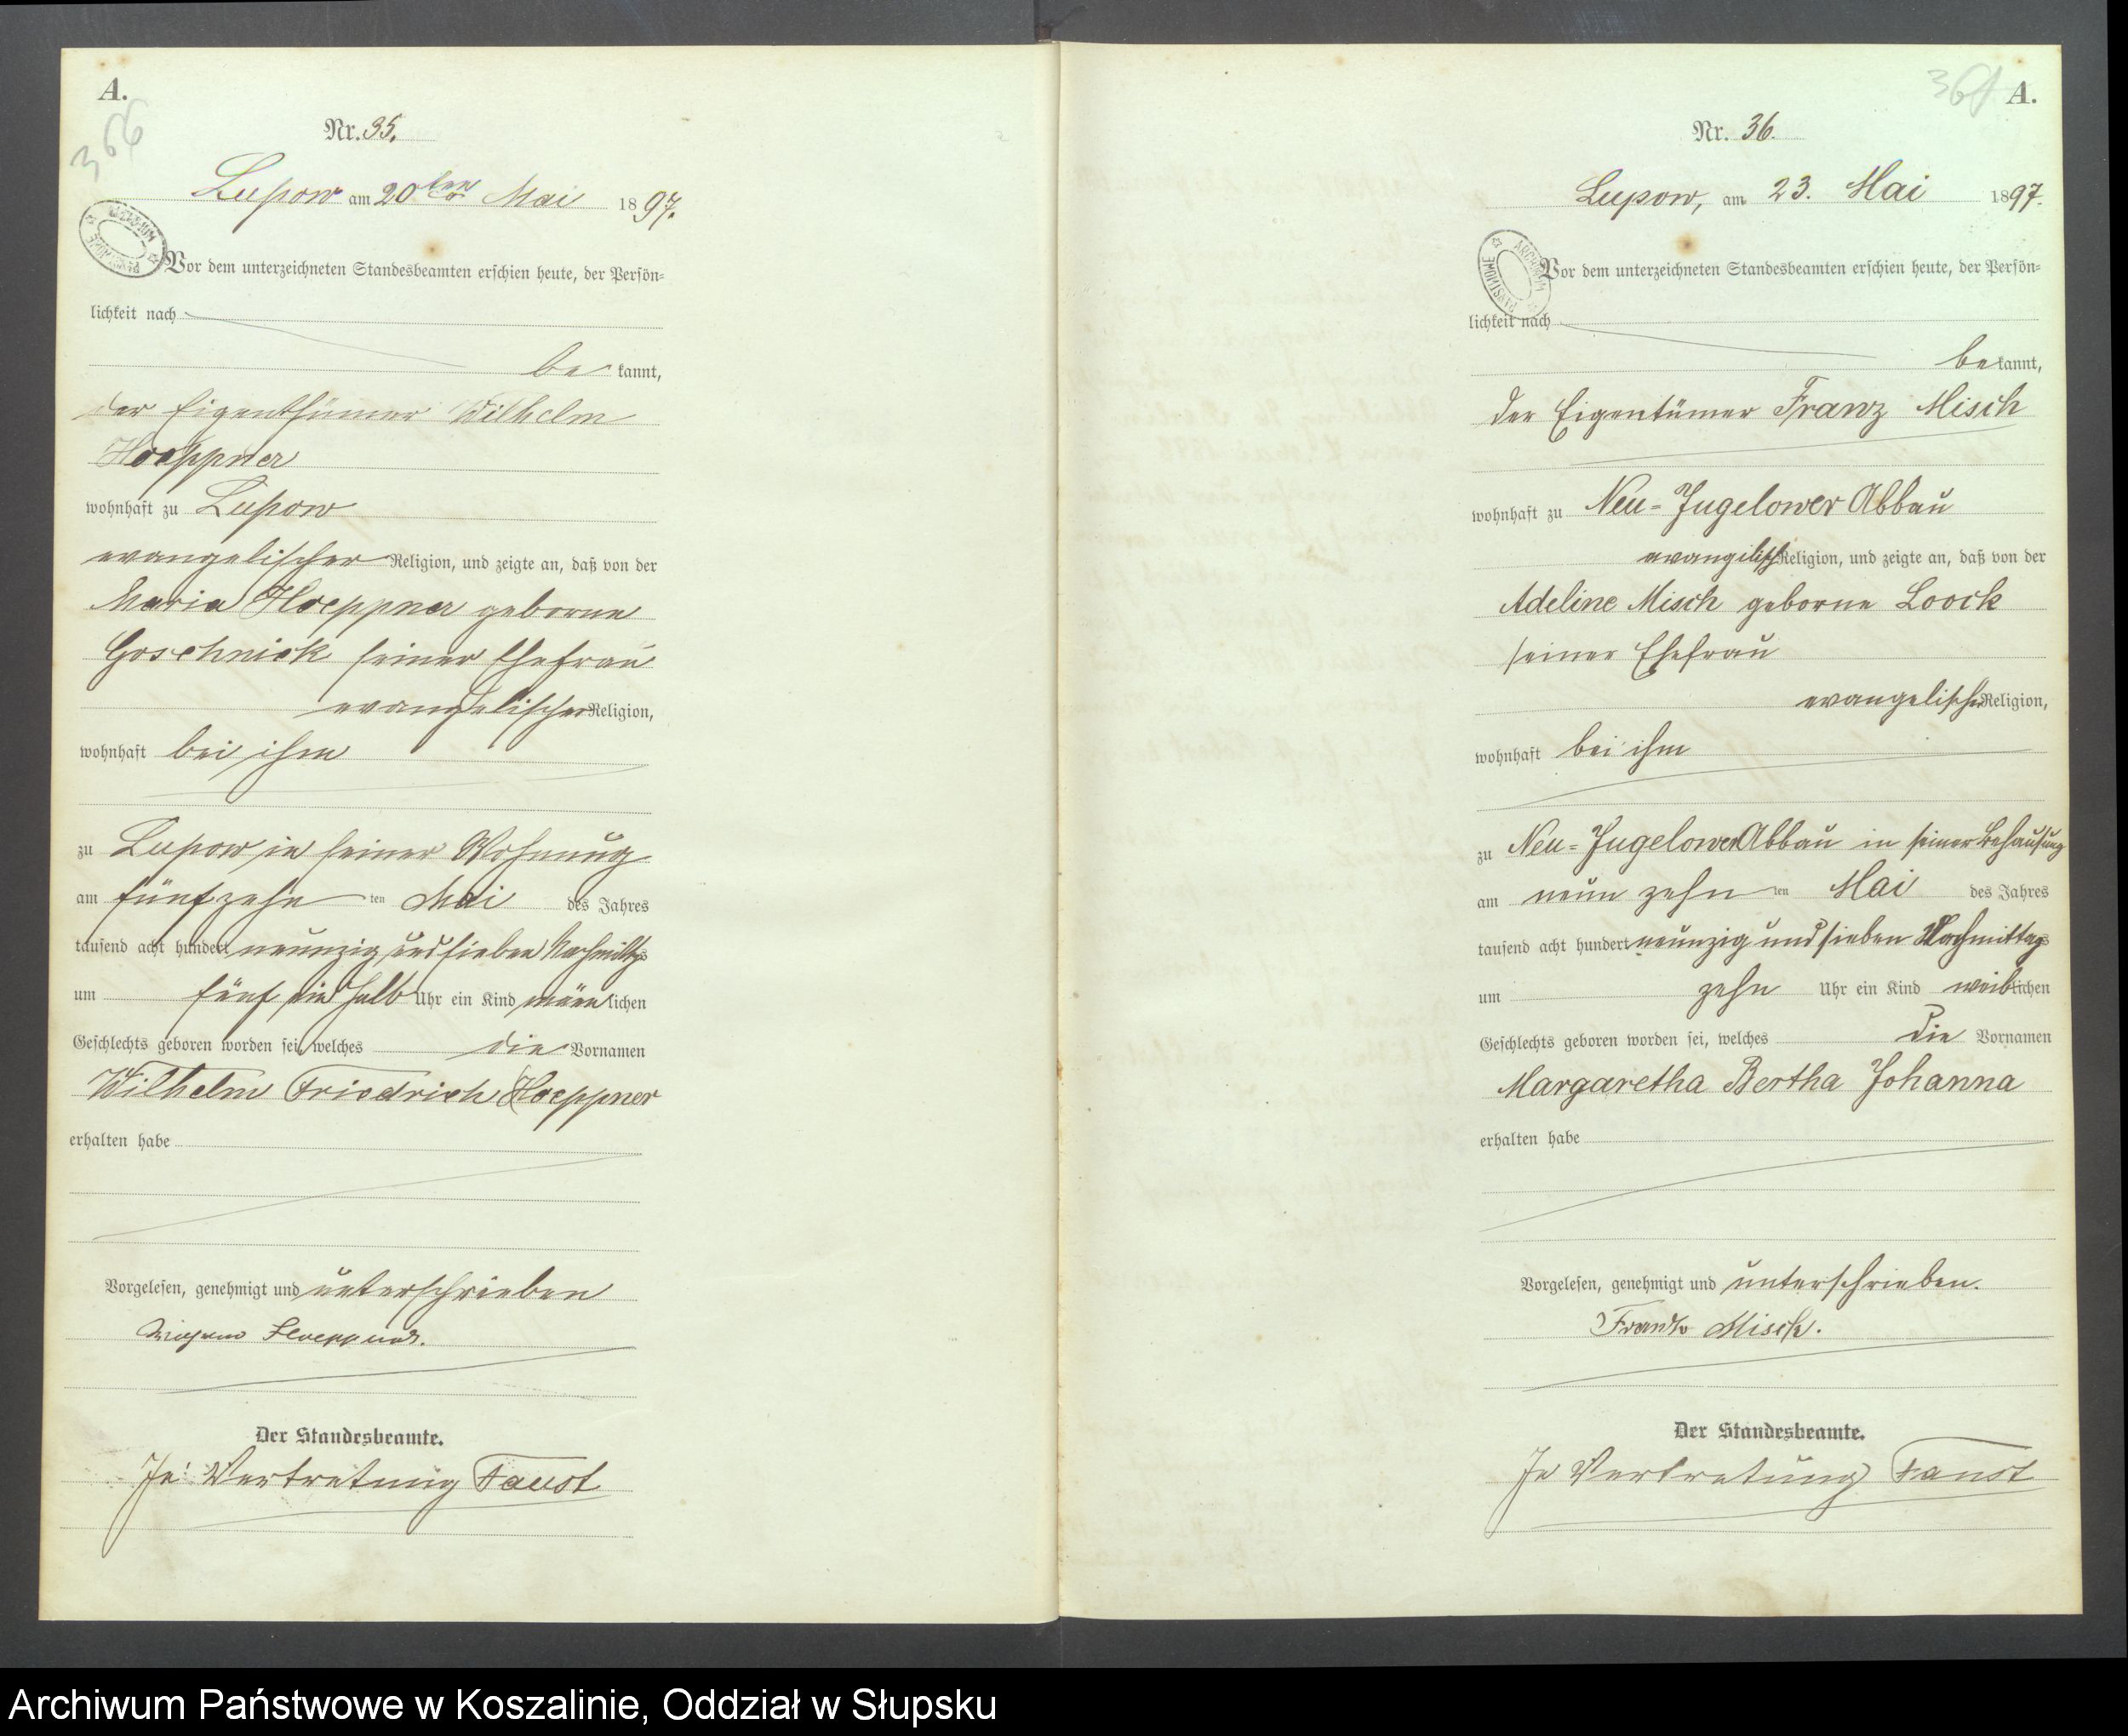 A.
366
Nr. 35.
Lupow am 20ten Mai 1897.
ARCHIWUM PAŃSTWOWE
Vor dem unterzeichneten Standesbeamten erschien heute, der Persön-
lichkeit nach
be kannt,
der Eigenthümer Wilhelm
Hoeppner
wohnhaft zu Lupow
evangelischer Religion, und zeigte an, daß von der
Maria Hoeppner geborne
Goschnick seiner Ehefrau
evangelischer Religion,
wohnhaft bei ihm
zu Lupow in seiner Wohnung
am fünfzehn ten Mai des Jahres
tausend acht hundert neunzig und sieben Nachmittags
um fünf ein halb Uhr ein Kind männ lichen
Geschlechts geboren worden sei, welches die Vornamen
Wilhelm Friedrich Hoeppner
erhalten habe
Vorgelesen, genehmigt und unterschrieben
Hoeppner.
Der Standesbeamte.
In Vertretung Faust
A.
Nr. 36.
Lupow, am 23. Mai 1897.
ARCHIWUM PAŃSTWOWE
Vor dem unterzeichneten Standesbeamten erschien heute, der Persön-
lichkeit nach
be kannt,
der Eigentümer Franz Misch
wohnhaft zu Neu-Jugelower Abbau
evangelisch Religion, und zeigte an, daß von der
Adeline Misch geborne Loock
seiner Ehefrau
evangelischer Religion,
wohnhaft bei ihm
zu Neu-Jugelower Abbau in seiner Behausung
am neun zehn ten Mai des Jahres
tausend acht hundert neunzig und sieben Nachmittags
um zehn Uhr ein Kind weib lichen
Geschlechts geboren worden sei, welches die Vornamen
Margaretha Bertha Johanna
erhalten habe
Vorgelesen, genehmigt und unterschrieben.
Misch.
Der Standesbeamte.
In Vertretung Faust
Archiwum Państwowe w Koszalinie, Oddział w Słupsku